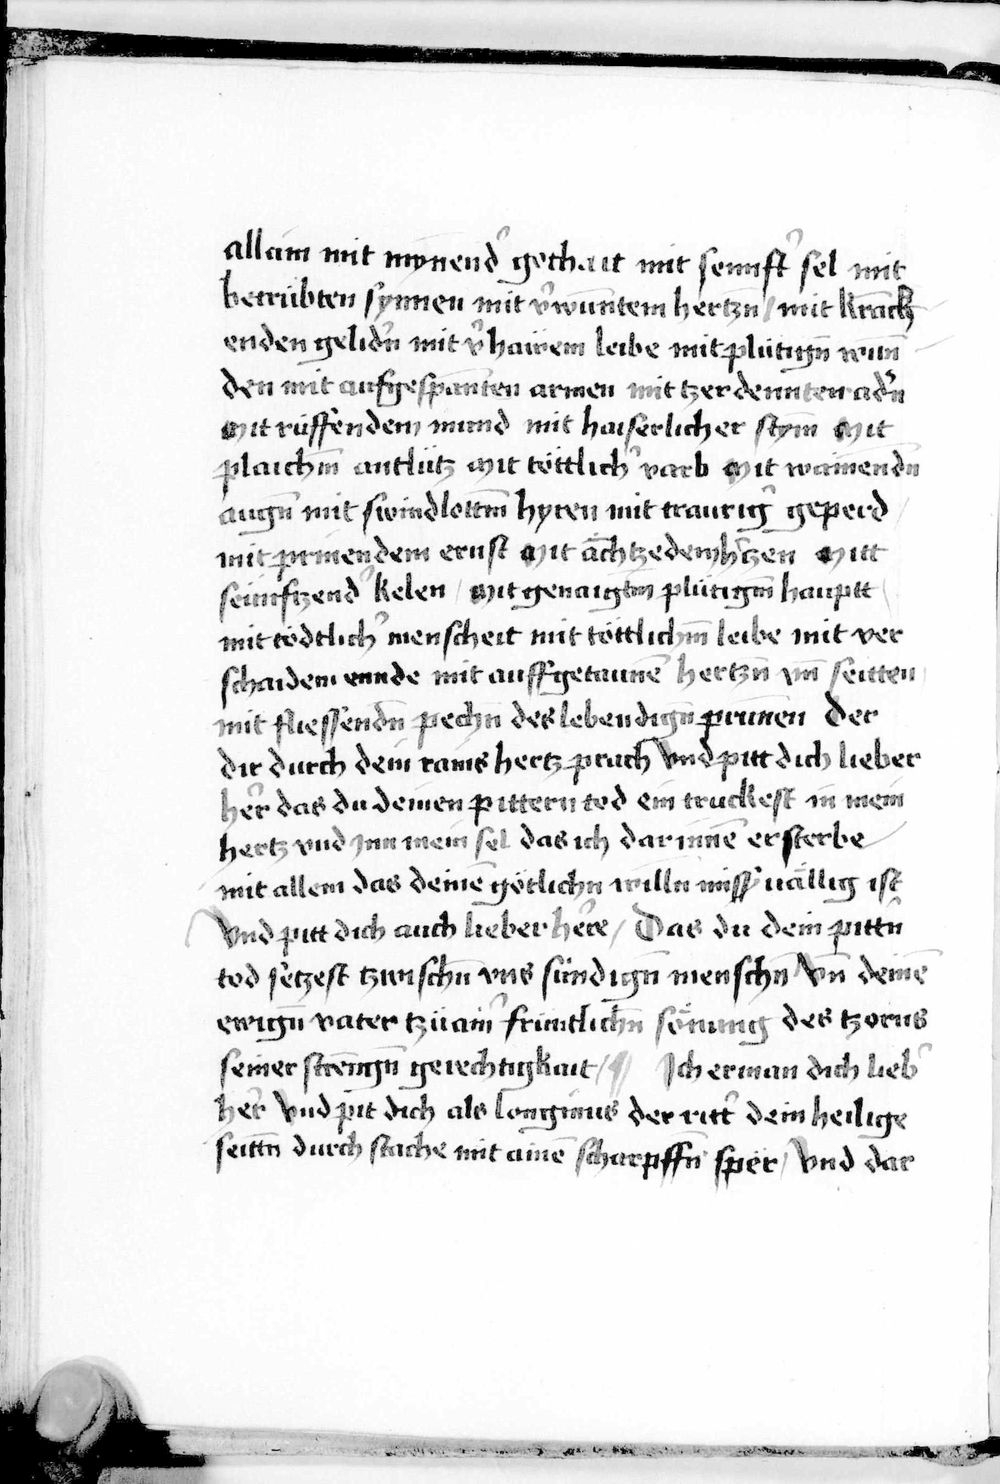 allain mit mynend' gethait mit sennft' sel mit
betrübten synnen mit v'wuntem hertzn̄ / mit krāck
enden gelid'n̄ mit v'haiivem leibe mit plutign̄ wun̄
den mit aufgespannten armen mit tzerdennten ad'n̄
Mit rüffendem mund mit haiserlicher stym̄ Mit
plaichm̄ antlütz Mit töttlich' varb Mit wainendn̄
augn̄ mit swindlottm̄ hyren mit traurig' geperd
mit prinendem ernst Mit ächtzedem h'tzen Mitt
seünftzend' kelen / Mit genaigtm̄ plütigm̄ hauptt
mit tödtlich' menscheit mit töttlichm̄ leibe mit ver
schaidem ennde mit auffgetaunē hertzn̄ vn̄ seitten
mit fliessendn̄ pechn̄ des lebendign̄ prunnen Der
dir durch dein rains hertz prach Vnd pitt dich lieber
her' das du deinen pittern tod ein truckest in mein
hertz vnd Inn mein sel das ich darinnē ersterbe
mit allem das deinē götlichn willn missuällig ist
Vnd pitt dich auch lieber he're / Das du dein pittn̄
tod setzest tzwischn̄ vns sündign̄ menschn̄ Vn̄ deinē
ewign̄ vater tzü ain' frintlichn̄ sönung des tzorns
seiner strengn̄ gerechtigkait / ¶ Ich erman dich lieb'
her' Vnd pit dich als longinus der ritt' dein heilige
seittn̄ durch stache mit ainē scharpffn̄ sper / Vnd dar